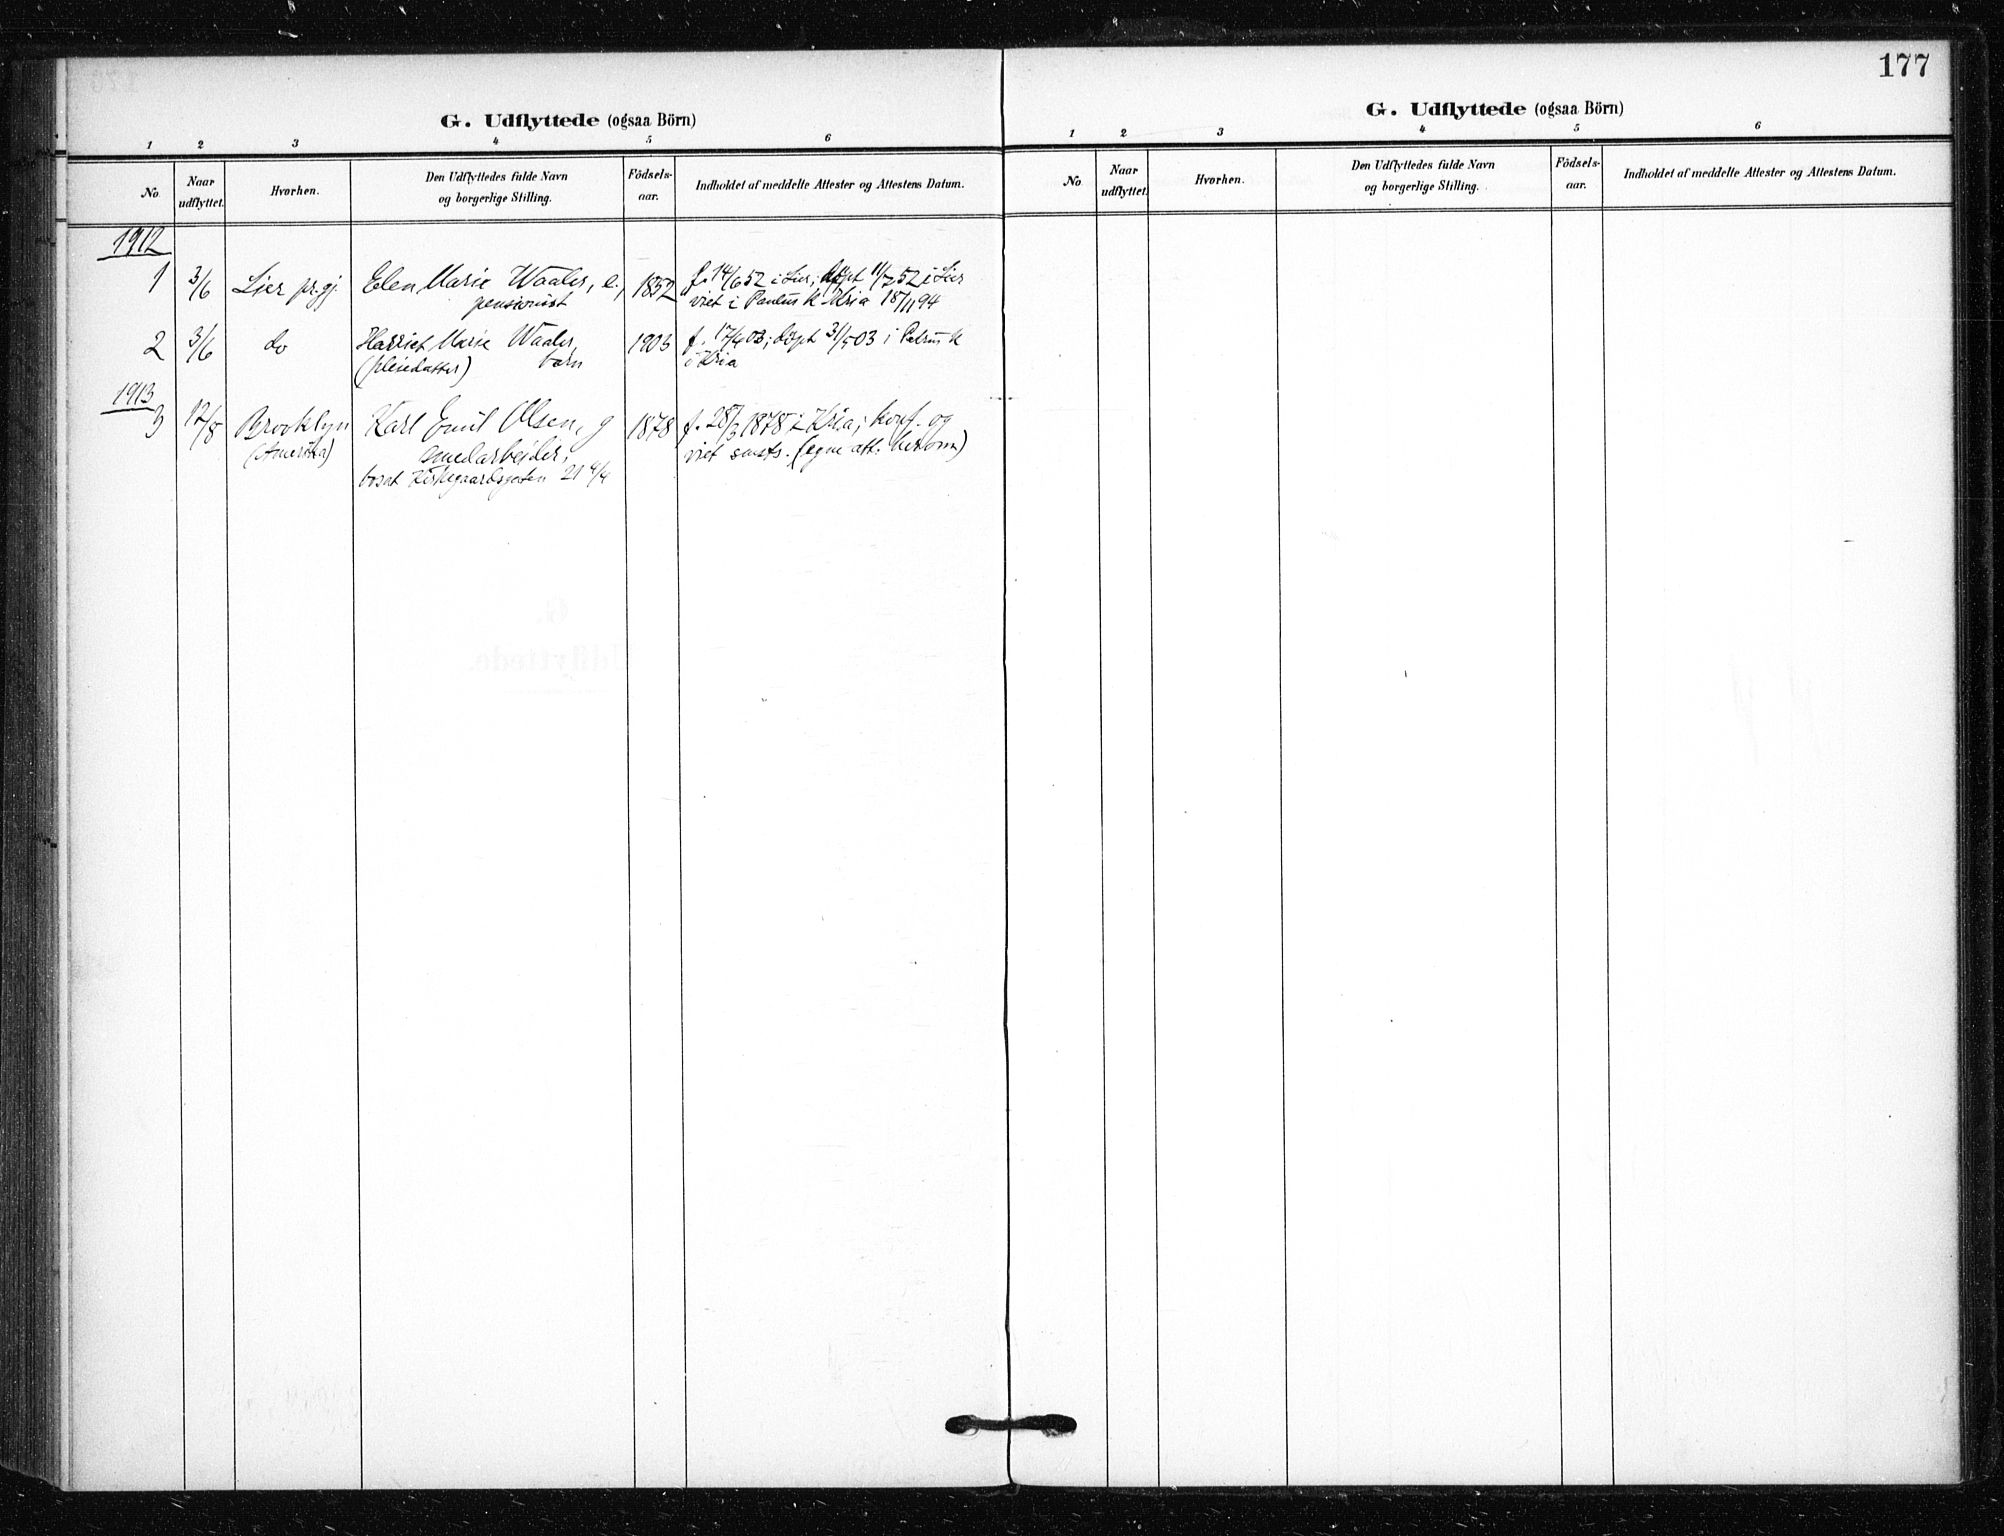 177
G. Udflyttede (ogsaa Börn)
1 2 3 4 5 6
No Naar udflyttet. Hvorhen. Den Udflyttedes fulde Navn og borgerlige Stilling. Födsels-aar. Indholdet af meddelte Attester og Attestens Datum.
1912
1 3/6 Lier pr.gj. Elen Marie Waaler, e., 1852 f. 14/6 52 i Lier; döpt 11/7 52 i Lier
pensionist viet i Paulus k Kria 18/11 94
2 3/6 do Harriet Marie Waaler, 1903 f. 17/4 03; döpt 31/5 03 i Petrus k
(pleiedatter) barn i Kria
1913
3 12/8 Brooklyn Karl Emil Olsen, g 1878 f. 28/3 1878 i Kria; konf. og
(Amerika) smedarbeider; viet smsts. (egne att. herom)
bosat Kirkegaardsgaten 21 4/4
G. Udflyttede (ogsaa Börn)
1 2 3 4 5 6
No Naar udflyttet. Hvorhen. Den Udflyttedes fulde Navn og borgerlige Stilling. Födsels-aar. Indholdet af meddelte Attester og Attestens Datum.